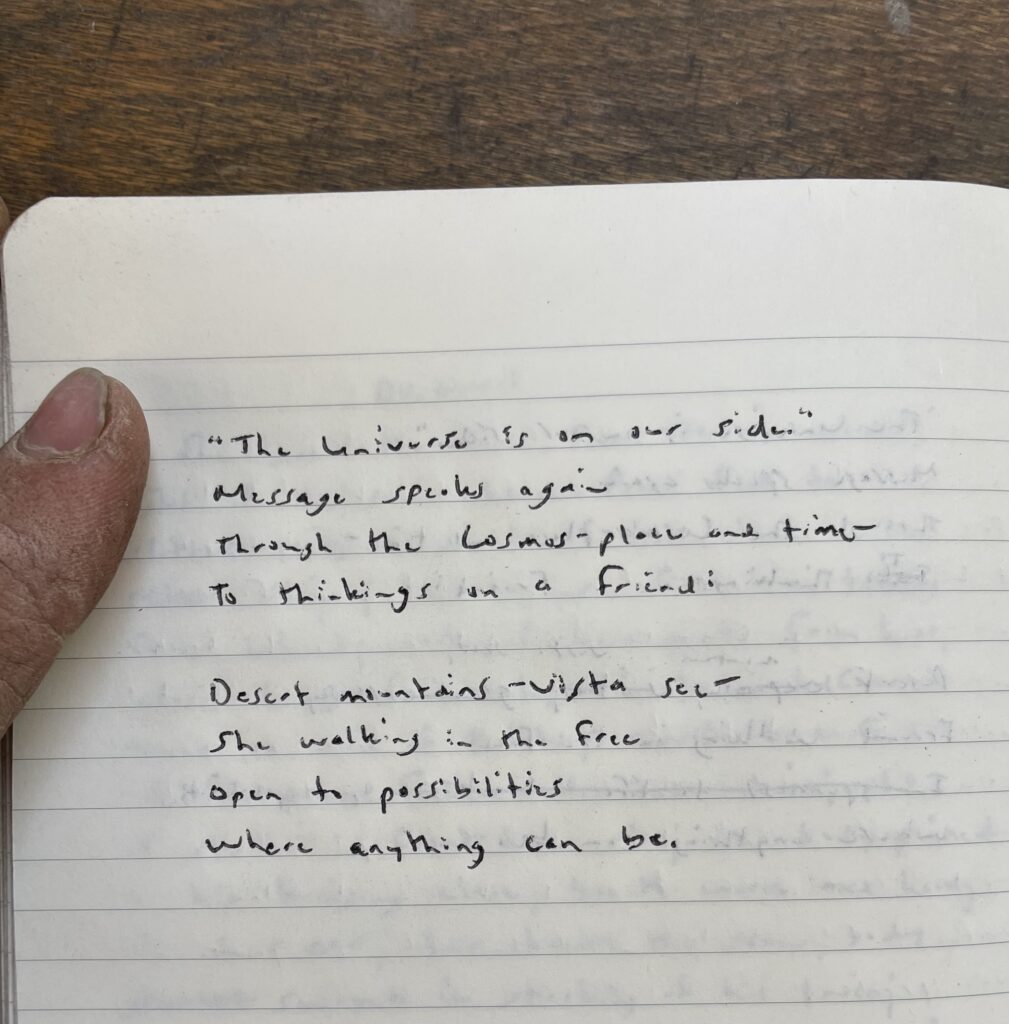 "The Universe is on our side."
Message speaks again
Through the Cosmos - place and time -
To thinkings on a friend:
Desert mountains - vista see -
She walking in the free
Open to possibilities
Where anything can be.